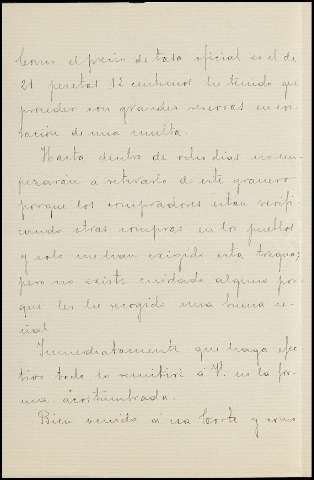 Como el precio de tasa oficial es el de
21 pesetas 12 centimos he tenido que
proceder con grandes reservas en
de una multa.
Hasta dentro de ocho dias no em-
pezarán a retirarlo de este granero
porque los compradores estan verifi-
cando otras compras en los pueblos
y solo me han exigido esta tregua;
pero no existe cuidado alguno por
que les he recogido una buena se-
ñal
Inmediatamente que haga efec-
tivo todo lo remitiré á V. en la for-
ma acostumbrada.
Bien venido á esa Corte y como